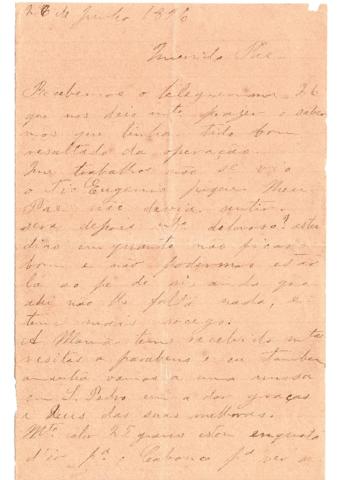 26 de Junho 1896
Querido Pae
Recebemos o telegramma
que nos deu mto prazer o saber
mos que tinha tido bom
resultado da operação.
o Tio Eugenio porque Meu
Pae não devia sentir.
será depois mto doloroso? estes
dias em quanto não ficas
bom e não podermos estar
lá ao pé de si, ainda que
ahi não lhe falta nada, e
tem mais socego.
A Mamã tem recebido mtas
visitas e parabens e eu tambem
amanhã vamos a uma missa
em S. Pedro em a dar graças
a Deus das suas melhoras.
Mto calor 25 graus estou